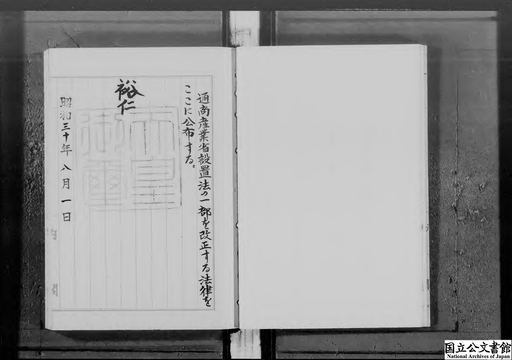 通商産業省設置法の一部を改正する法律を
ここに公布する。
裕仁
天皇
御璽
昭和三十年八月一日
国立公文書館
National Archives of Japan